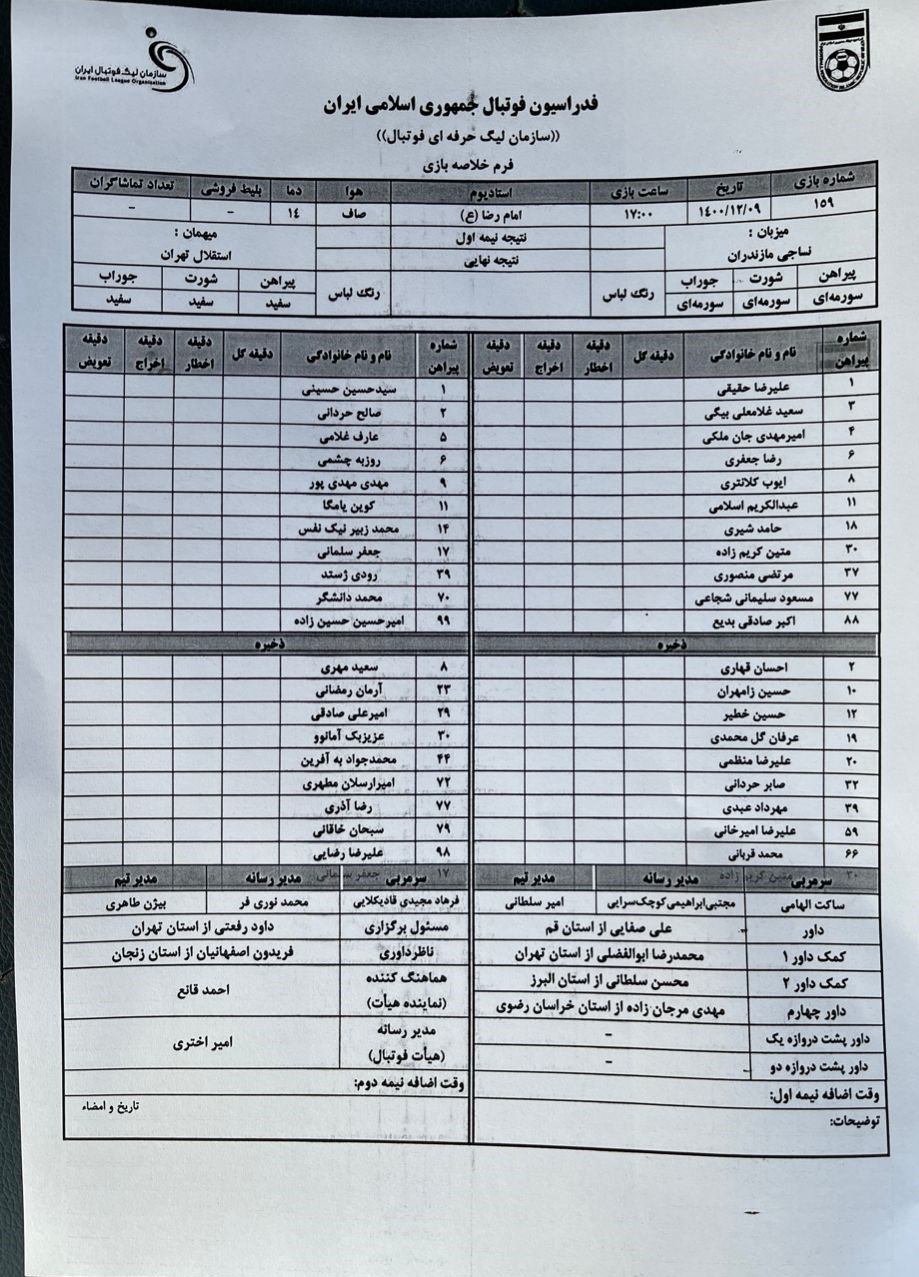 سازمان لیگ فوتبال ایران
Iran Football League Organization
فدراسیون فوتبال جمهوری اسلامی ایران
((سازمان لیگ حرفه ای فوتبال))
فرم خلاصه بازی
شماره بازی تاریخ ساعت بازی استادیوم هوا دما بلیط فروشی تعداد تماشاگران
۱۵۹ ۱۴۰۰/۱۲/۰۹ ۱۷:۰۰ امام رضا (ع) صاف ۱۴ - -
میزبان : نتیجه نیمه اول میهمان :
نساجی مازندران نتیجه نهایی استقلال تهران
پیراهن شورت جوراب رنگ لباس رنگ لباس پیراهن شورت جوراب
سورمه‌ای سورمه‌ای سورمه‌ای سفید سفید سفید
شماره پیراهن نام و نام خانوادگی دقیقه گل دقیقه اخطار دقیقه اخراج دقیقه تعویض شماره پیراهن نام و نام خانوادگی دقیقه گل دقیقه اخطار دقیقه اخراج دقیقه تعویض
۱ علیرضا حقیقی ۱ سیدحسین حسینی
۳ سعید غلامعلی بیگی ۲ صالح حردانی
۴ امیرمهدی جان ملکی ۵ عارف غلامی
۶ رضا جعفری ۶ روزبه چشمی
۸ ایوب کلانتری ۹ مهدی مهدی پور
۱۱ عبدالکریم اسلامی ۱۱ کوین یامگا
۱۸ حامد شیری ۱۴ محمد زبیر نیک نفس
۳۰ متین کریم زاده ۱۷ جعفر سلمانی
۳۷ مرتضی منصوری ۳۹ رودی ژستد
۷۷ مسعود سلیمانی شجاعی ۷۰ محمد دانشگر
۸۸ اکبر صادقی بدیع ۹۹ امیرحسین حسین زاده
ذخیره ذخیره
۲ احسان قهاری ۸ سعید مهری
۱۰ حسین زامهران ۲۳ آرمان رمضانی
۱۲ حسین خطیر ۲۹ امیرعلی صادقی
۱۹ عرفان گل محمدی ۳۰ عزیزبک آمانوو
۲۰ علیرضا منظمی ۴۴ محمدجواد به آفرین
۳۲ صابر حردانی ۷۲ امیرارسلان مطهری
۳۹ مهرداد عبدی ۷۷ رضا آذری
۵۹ علیرضا امیرخانی ۷۹ سبحان خاقانی
۶۶ محمد قربانی ۹۸ علیرضا رضایی
سرمربی مدیر رسانه مدیر تیم سرمربی مدیر رسانه مدیر تیم
ساکت الهامی مجتبی‌ابراهیمی‌کوچک‌سرایی امیر سلطانی فرهاد مجیدی قادیکلایی محمد نوری فر بیژن طاهری
داور علی صفایی از استان قم مسئول برگزاری داود رفعتی از استان تهران
کمک داور ۱ محمدرضا ابوالفضلی از استان تهران ناظرداوری فریدون اصفهانیان از استان زنجان
کمک داور ۲ محسن سلطانی از استان البرز هماهنگ کننده (نماینده هیأت) احمد قانع
داور چهارم مهدی مرجان زاده از استان خراسان رضوی
داور پشت دروازه یک - مدیر رسانه (هیأت فوتبال) امیر اختری
داور پشت دروازه دو -
وقت اضافه نیمه اول: وقت اضافه نیمه دوم:
توضیحات: تاریخ و امضاء